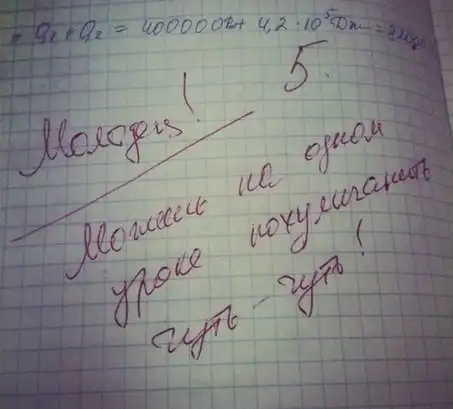 = Q₁ + Q₂ = 400000 + 4,2 · 10⁵ Дж =
5.
Молодец!
Можешь на одном
уроке похулиганить
чуть - чуть!